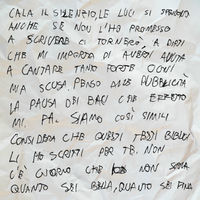 CALA IL SILENZIO, LE LUCI SI SPENGONO
ANCHE SE NON L'HO PROMESSO
A SCRIVERE CI TORNERÒ, A DIRTI
CHE MI IMPORTA DI AVERTI AVUTA
A CANTARE TANTO FORTE OGNI
MIA SCUSA, PENSO DALLA PUBBLICITÀ
LA PAUSA DEI BACI CHE EFFETTO
MI FA. SIAMO COSÌ SIMILI
CONSIDERA CHE QUESTI TESTI
LI HO SCRITTI PER TE. NON
C'È GIORNO CHE NON
QUANTO SEI BELLA, QUANTO SEI